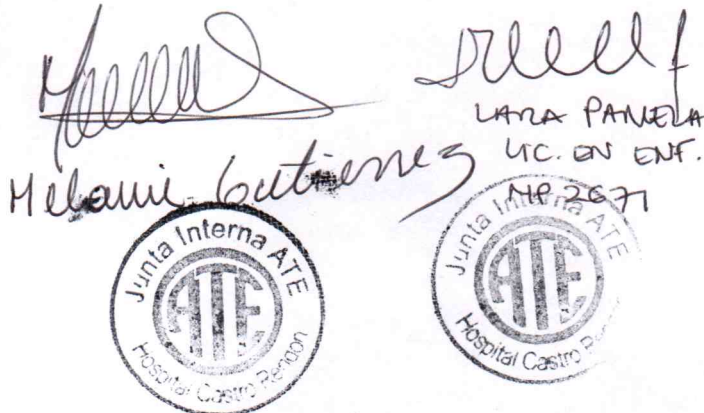 Melanie Gutierrez
LARA PAMELA
LIC. EN ENF.
MP 2671
Junta Interna ATE
ATE
Hospital Castro Rendon
Junta Interna ATE
ATE
Hospital Castro Rendon